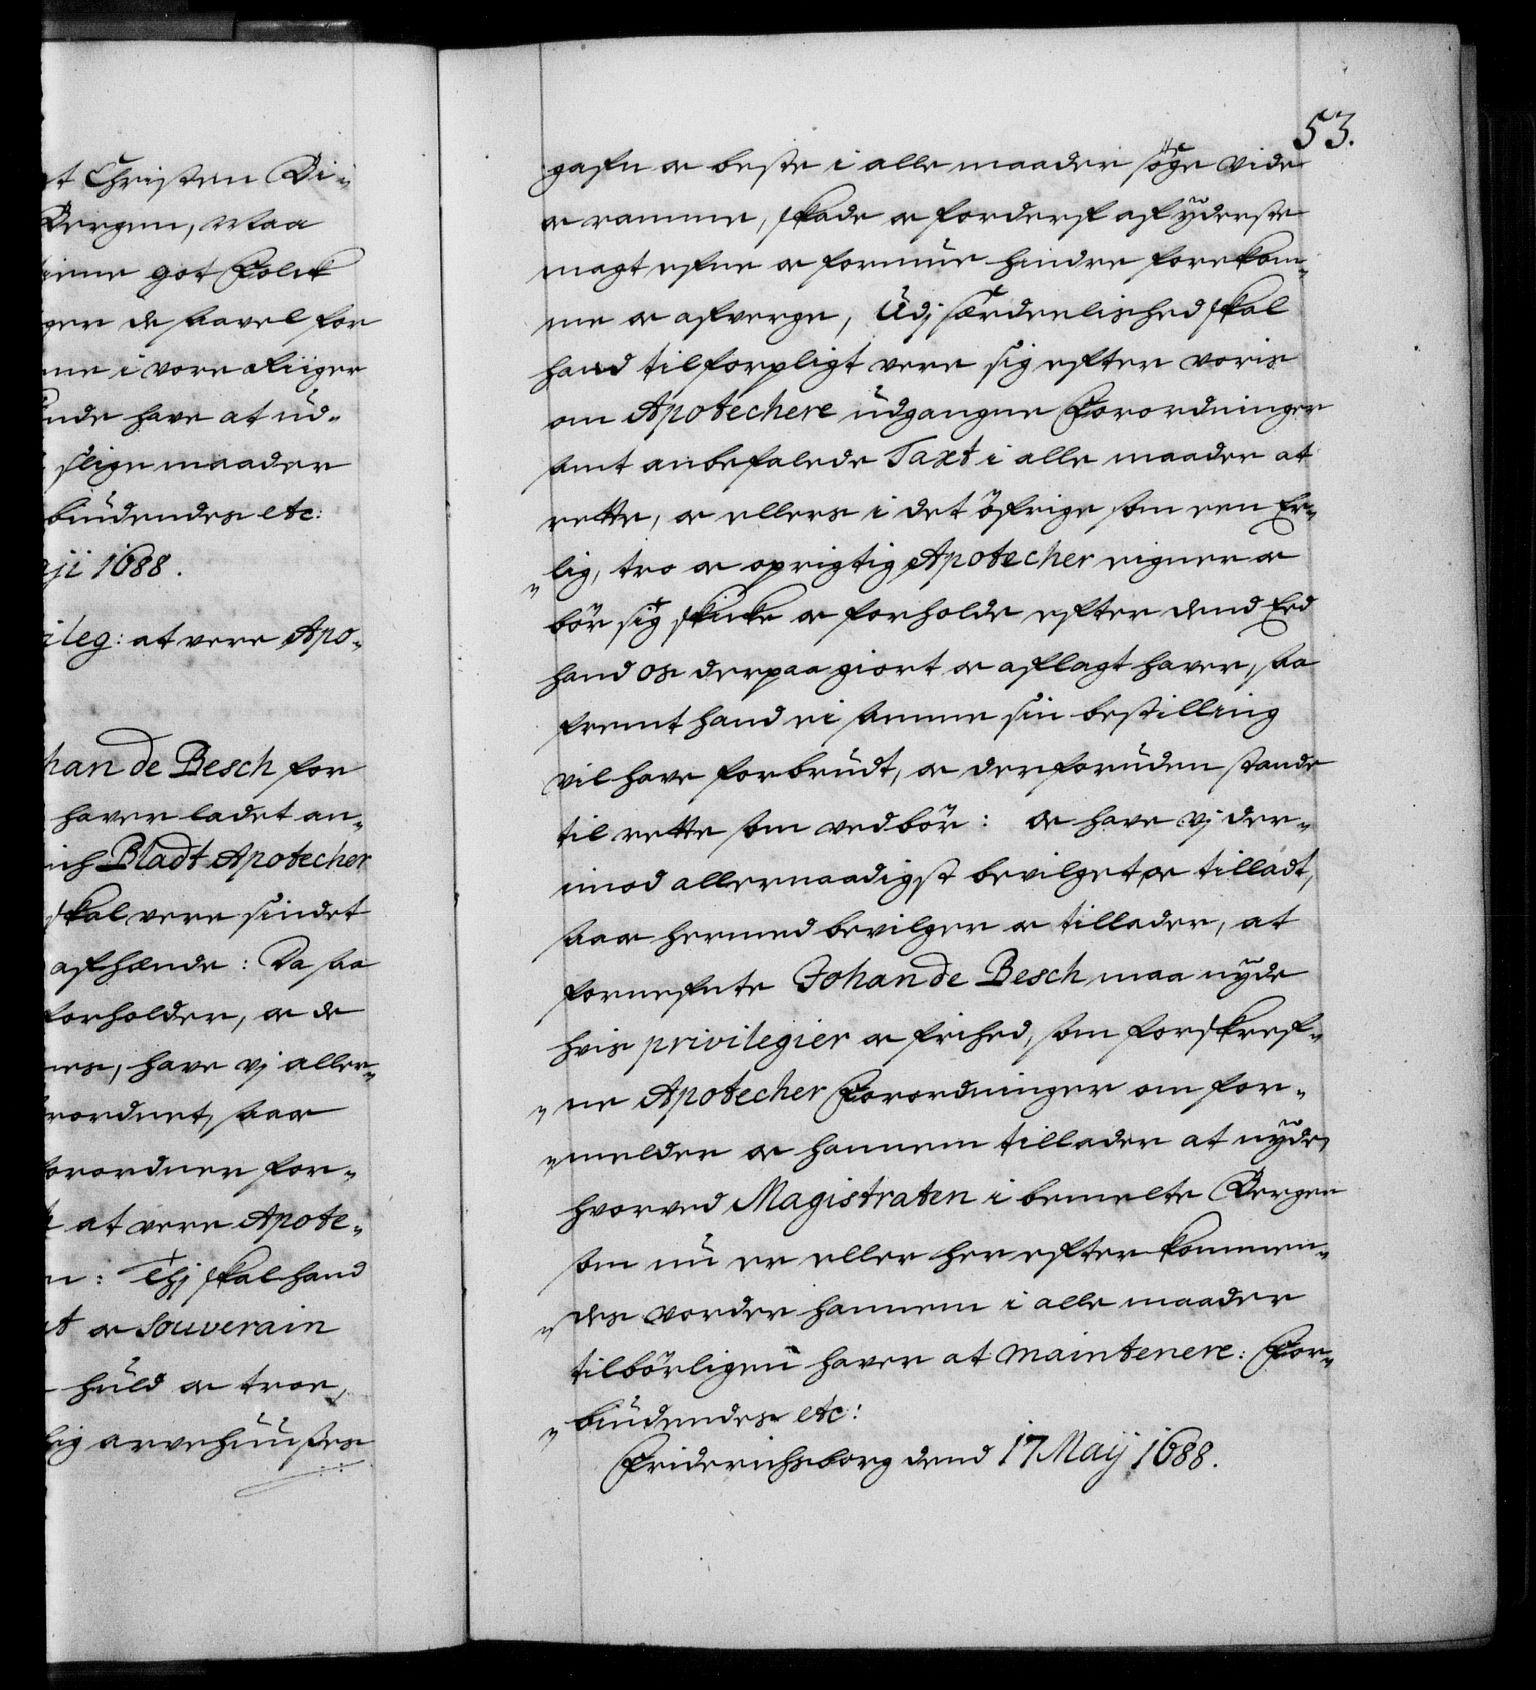 t Christen Di-
Bergen, Maa
inne got Folck
ger de saavel for
ne i vore Riiger
nde have at ud-
slige maader
bindendes etc:
ji 1688.
ileg: at vere Apo-
han de Besch for
haver ladet an-
ich Bladt Apotecher
skal vere sindet
afhænde: Da saa
forholder, og de
nes, have vj aller-
rordnet, saa
forordner for-
at vere Apote-
n: Thj skal hand
t og Souverain
huld og troe,
lig arvehuuses
53.
gafn og beste i alle maader søge vide
og ramme, skade og forderf af yderste
magt efne og formue hindre forekom-
me og afverge, Udj særdeelished skal
hand tilforpligt vere sig efter voris
om Apotechere udgangne Forordninger
samt anbefalede Taxt i alle maader at
rette, og ellers i det öfrige som een Er-
lig, tro og oprigtig Apotecher eigner og
bör sig skicke og forholde efter dend Eed
hand os derpaa giort og aflagt haver, saa
fremt hand ei samme sin bestilling
vil have forbrudt, og derforuden stande
til rette som vedbör: og have vj der-
imod allernaadigst bevilget og tilladt,
saa og hermed bevilger og tillader, at
fornefnte Johan de Besch maa nyde
hvis privilegier og frihed, som forskref-
ne Apotecher Forordninger om for-
melder og hannem tillader at nyde,
hvorved Magistraten i bemelte Bergen
som nu er eller her efter kommen-
des vorder hannem i alle maader
tilbörligen haver at maintenere: For-
bindendes etc:
Friderichsborg dend 17 Maij 1688.